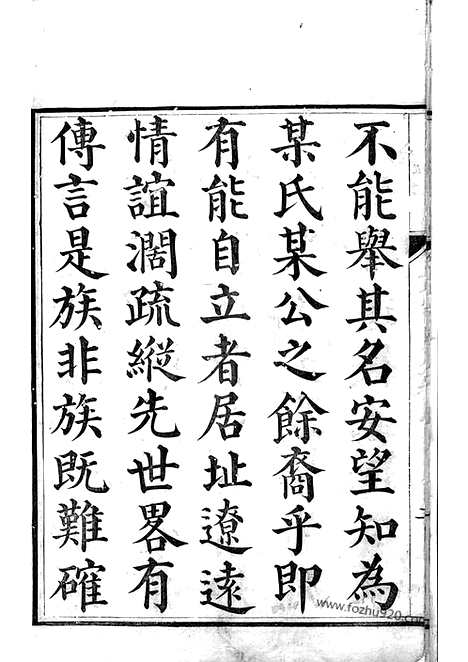 不能舉其名安望知為
某氏某公之餘裔乎即
有能自立者居址遼遠
情誼濶疏縱先世畧有
傳言是族非族既難確
www.fozhu920.com